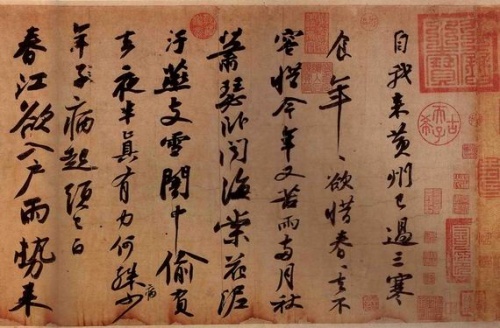 自我來黃州已過三寒
食年〻欲惜春〻去不
容惜今年又苦雨兩月秋
蕭瑟臥聞海棠花泥
汙燕支雪闇中偷負
去夜半真有力何殊病少
年子病起頭已白
春江欲入戶雨勢來
古希天子